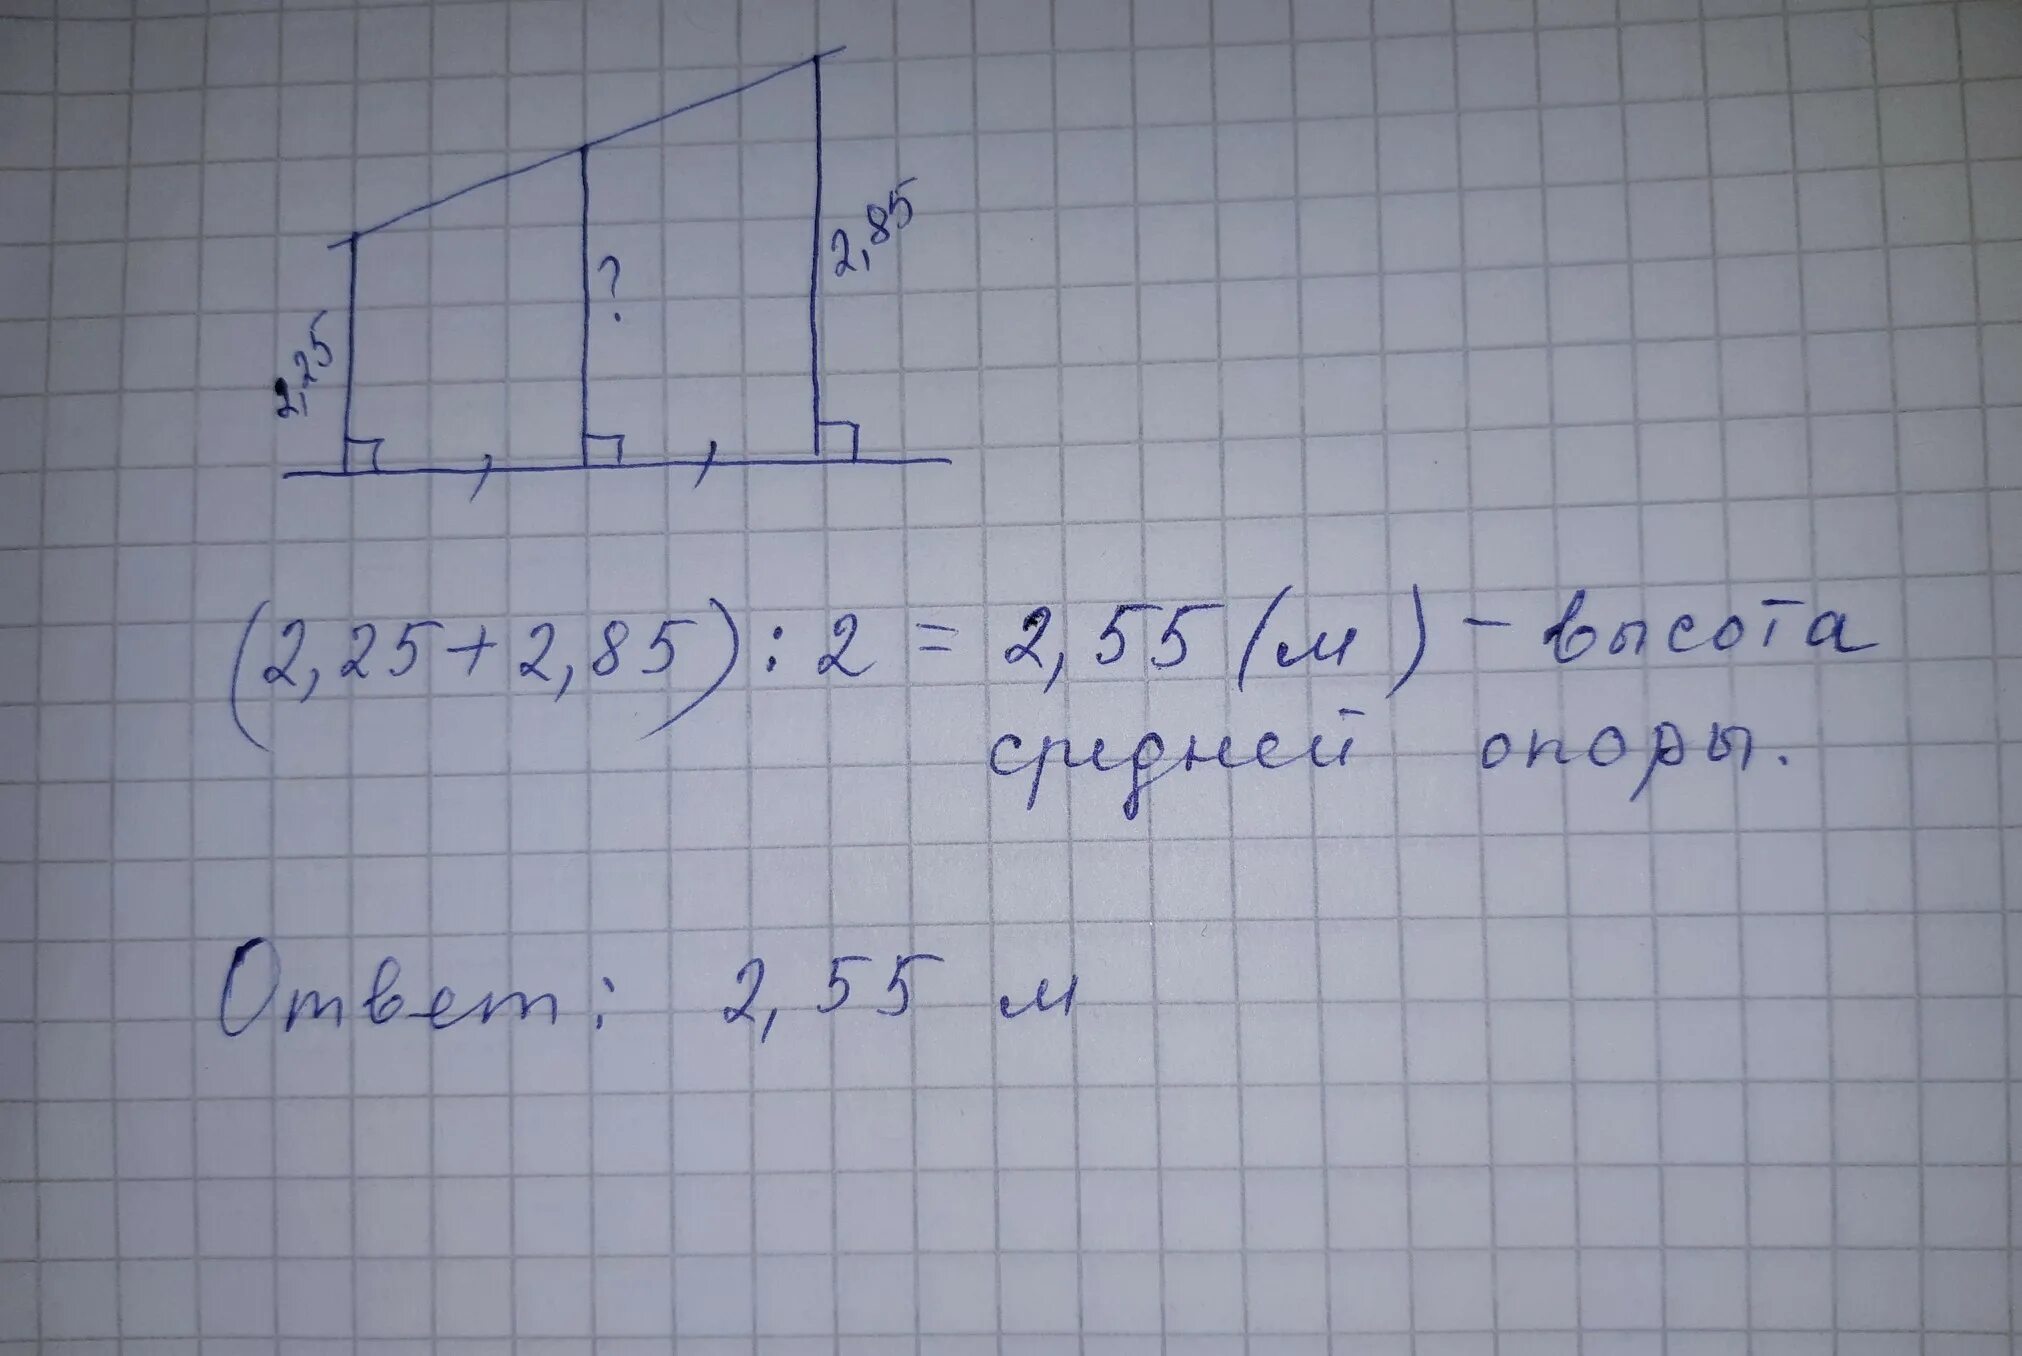 2,25
?
2,85
(2,25+2,85):2 = 2,55 (м) - высота
средней опоры.
Ответ: 2,55 м